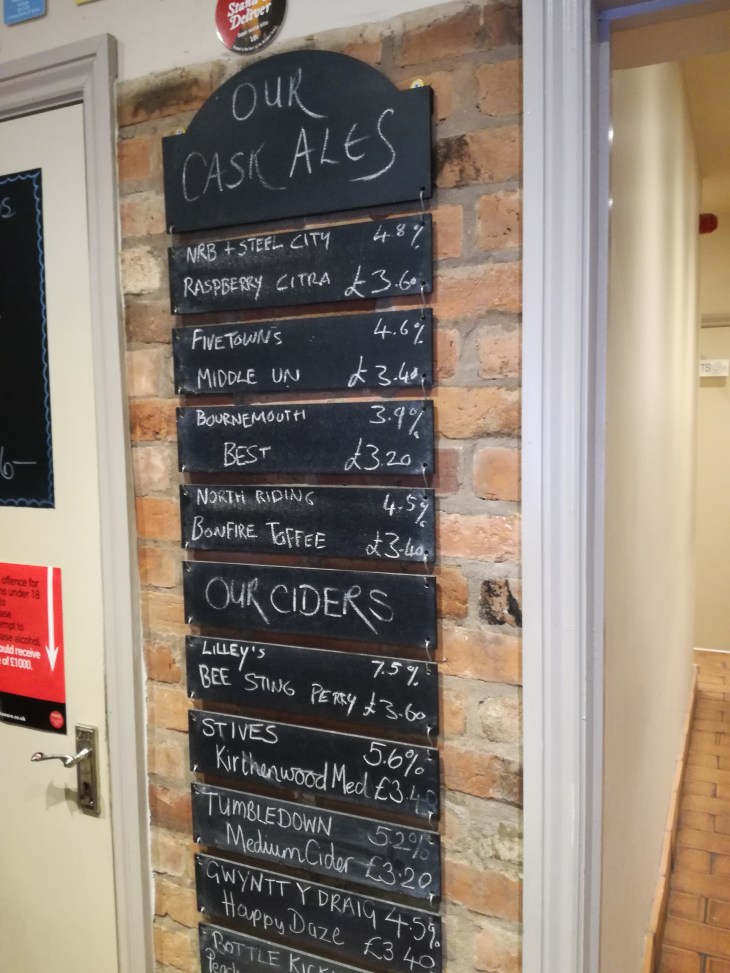 Stand &
Deliver
OUR
CASK ALES
NRB + STEEL CITY 4.8%
RASPBERRY CITRA £3.60
FIVETOWNS 4.6%
MIDDLE UN £3.40
BOURNEMOUTH 3.9%
BEST £3.20
NORTH RIDING 4.5%
BONFIRE TOFFEE £3.40
OUR CIDERS
LILLEY'S 7.5%
BEE STING PERRY £3.60
ST IVES 5.6%
Kirthenwood Med £3.4
TUMBLEDOWN 5.2%
Medium Cider £3.20
GWYNTT Y DRAIG 4.5%
Happy Daze £3.40
BOTTLE KICK
offence for
under 18
empt to
alcohol,
ould receive
of £1000.
TS